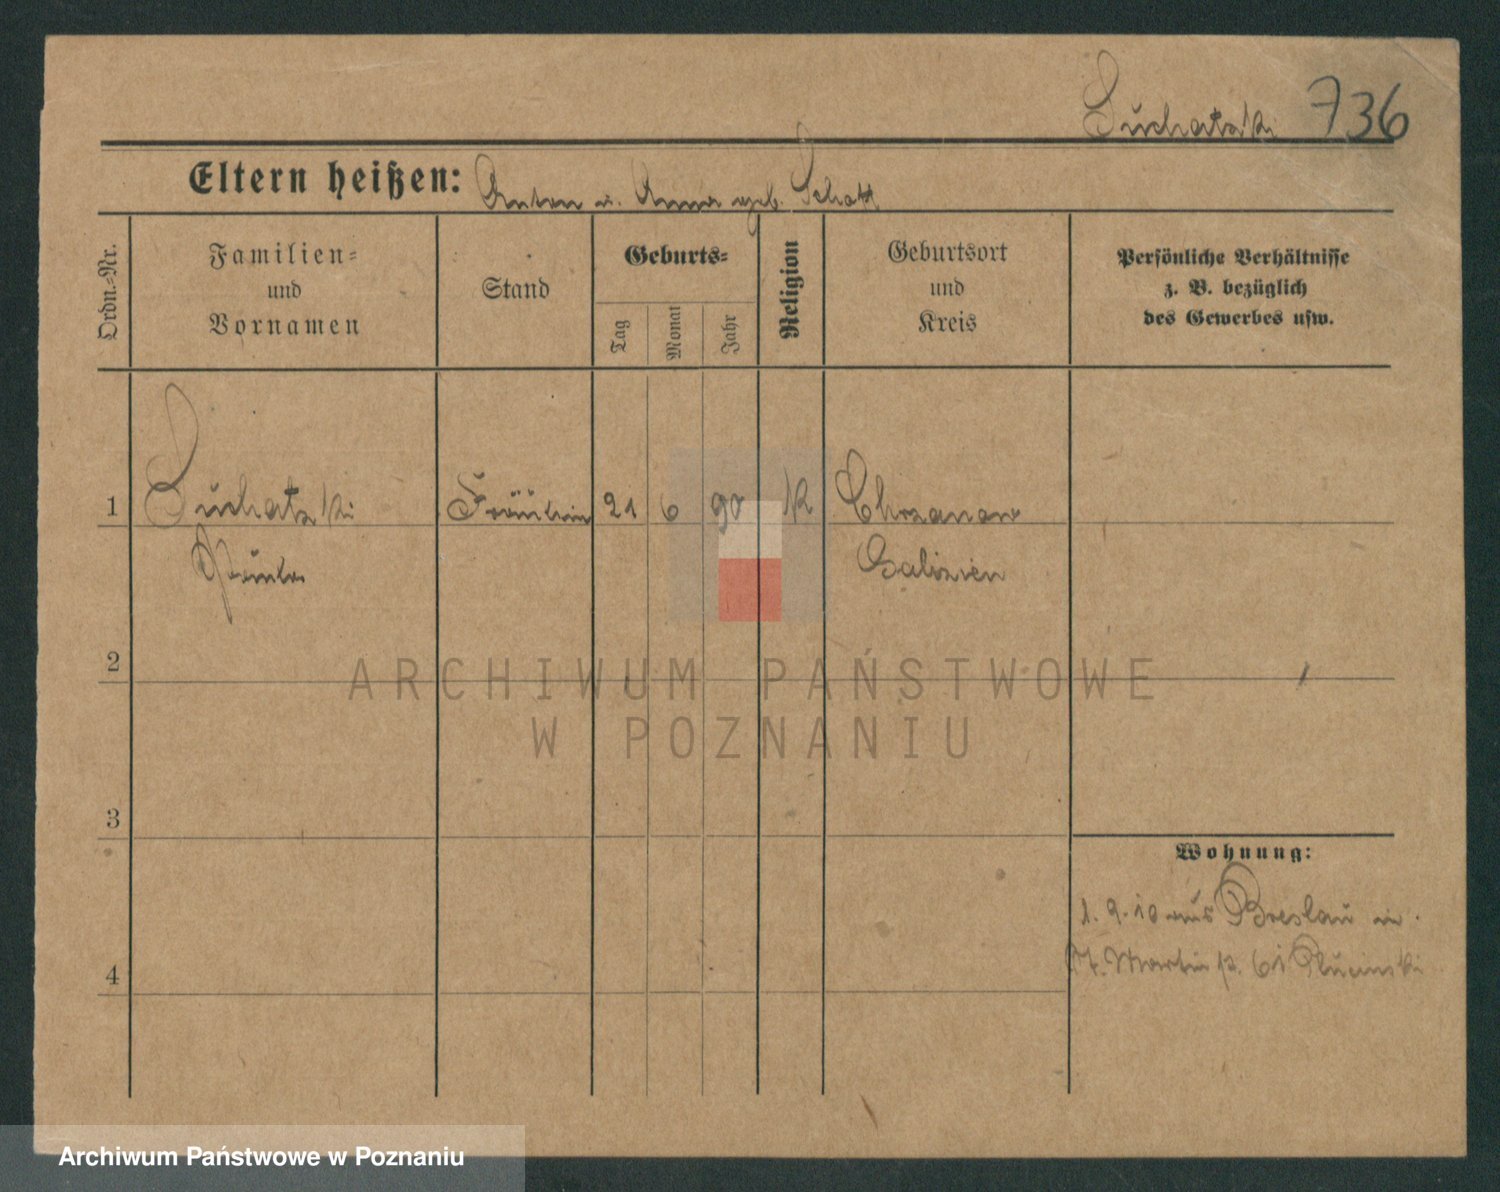 Suchatzki 736
Eltern heißen: Anton u. Anna geb. Schatt
Ordn.-Nr.
Familien-
und
Vornamen
Stand
Geburts-
Tag
Monat
Jahr
Religion
Geburtsort
und
Kreis
Persönliche Verhältnisse
z. B. bezüglich
des Gewerbes usw.
1 Suchatzki Fräulein 21 6 90 K Chrzanow
Paula Galizien
2
3
4
Wohnung:
1. 9. 10 aus Breslau in
St. Martin 61 Rucinski
ARCHIWUM PAŃSTWOWE
W POZNANIU
Archiwum Państwowe w Poznaniu